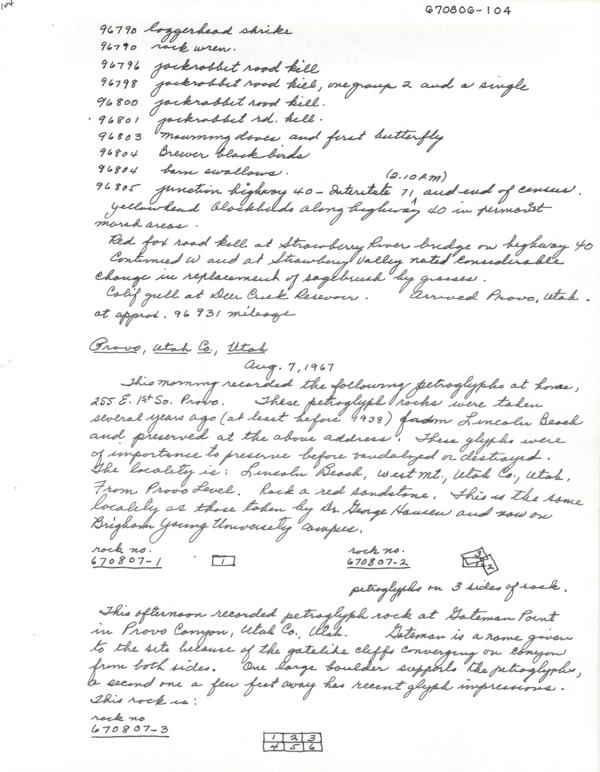 104
670806-104
96790 loggerhead shrike
96790 rock wren.
96796 jackrabbit road kill
96798 jackrabbit road kill, one group 2 and a single
96800 jackrabbit road kill.
96801 jackrabbit rd. kill.
96803 mourning doves and first butterfly
96804 Brewer black birds
96804 barn swallows. (2.10 PM)
96805 junction highway 40 - Interstate 71, and end of census.
Yellowhead blackbirds along highway 40 in
marsh areas.
Red fox road kill at Strawberry River bridge on highway 40
Continued W and at Strawberry Valley noted considerable
change in replacement of sagebrush by grasses.
Calif gull at Deer Creek Resevoir. Arrived Provo, Utah.
at approx. 96931 mileage
Provo, Utah Co., Utah
Aug. 7, 1967
This morning recorded the following petroglyphs at home,
255 E. 1st So. Provo. These petroglyph rocks were taken
several years ago (at least before 1938) from Lincoln Beach
and preserved at the above address. These glyphs were
of importance to preserve before vandalized or destroyed.
The locality is: Lincoln Beach, West Mt., Utah Co., Utah.
From Provo Level. Rock a red sandstone. This is the same
locality as those taken by Dr. George Hansen and now on
Brigham Young University campus.
rock no. rock no.
670807-1 1 670807-2 3 1 2
petroglyphs on 3 sides of rock.
This afternoon recorded petroglyph rock at Gateman Point
in Provo Canyon, Utah Co., Utah. Gateman is a name given
to the site because of the gatelike cliffs converging on canyon
from both sides. One large boulder supports the petroglyphs,
a second one a few feet away has recent glyph impressions.
This rock is:
rock no
670807-3
1 2 3
4 5 6